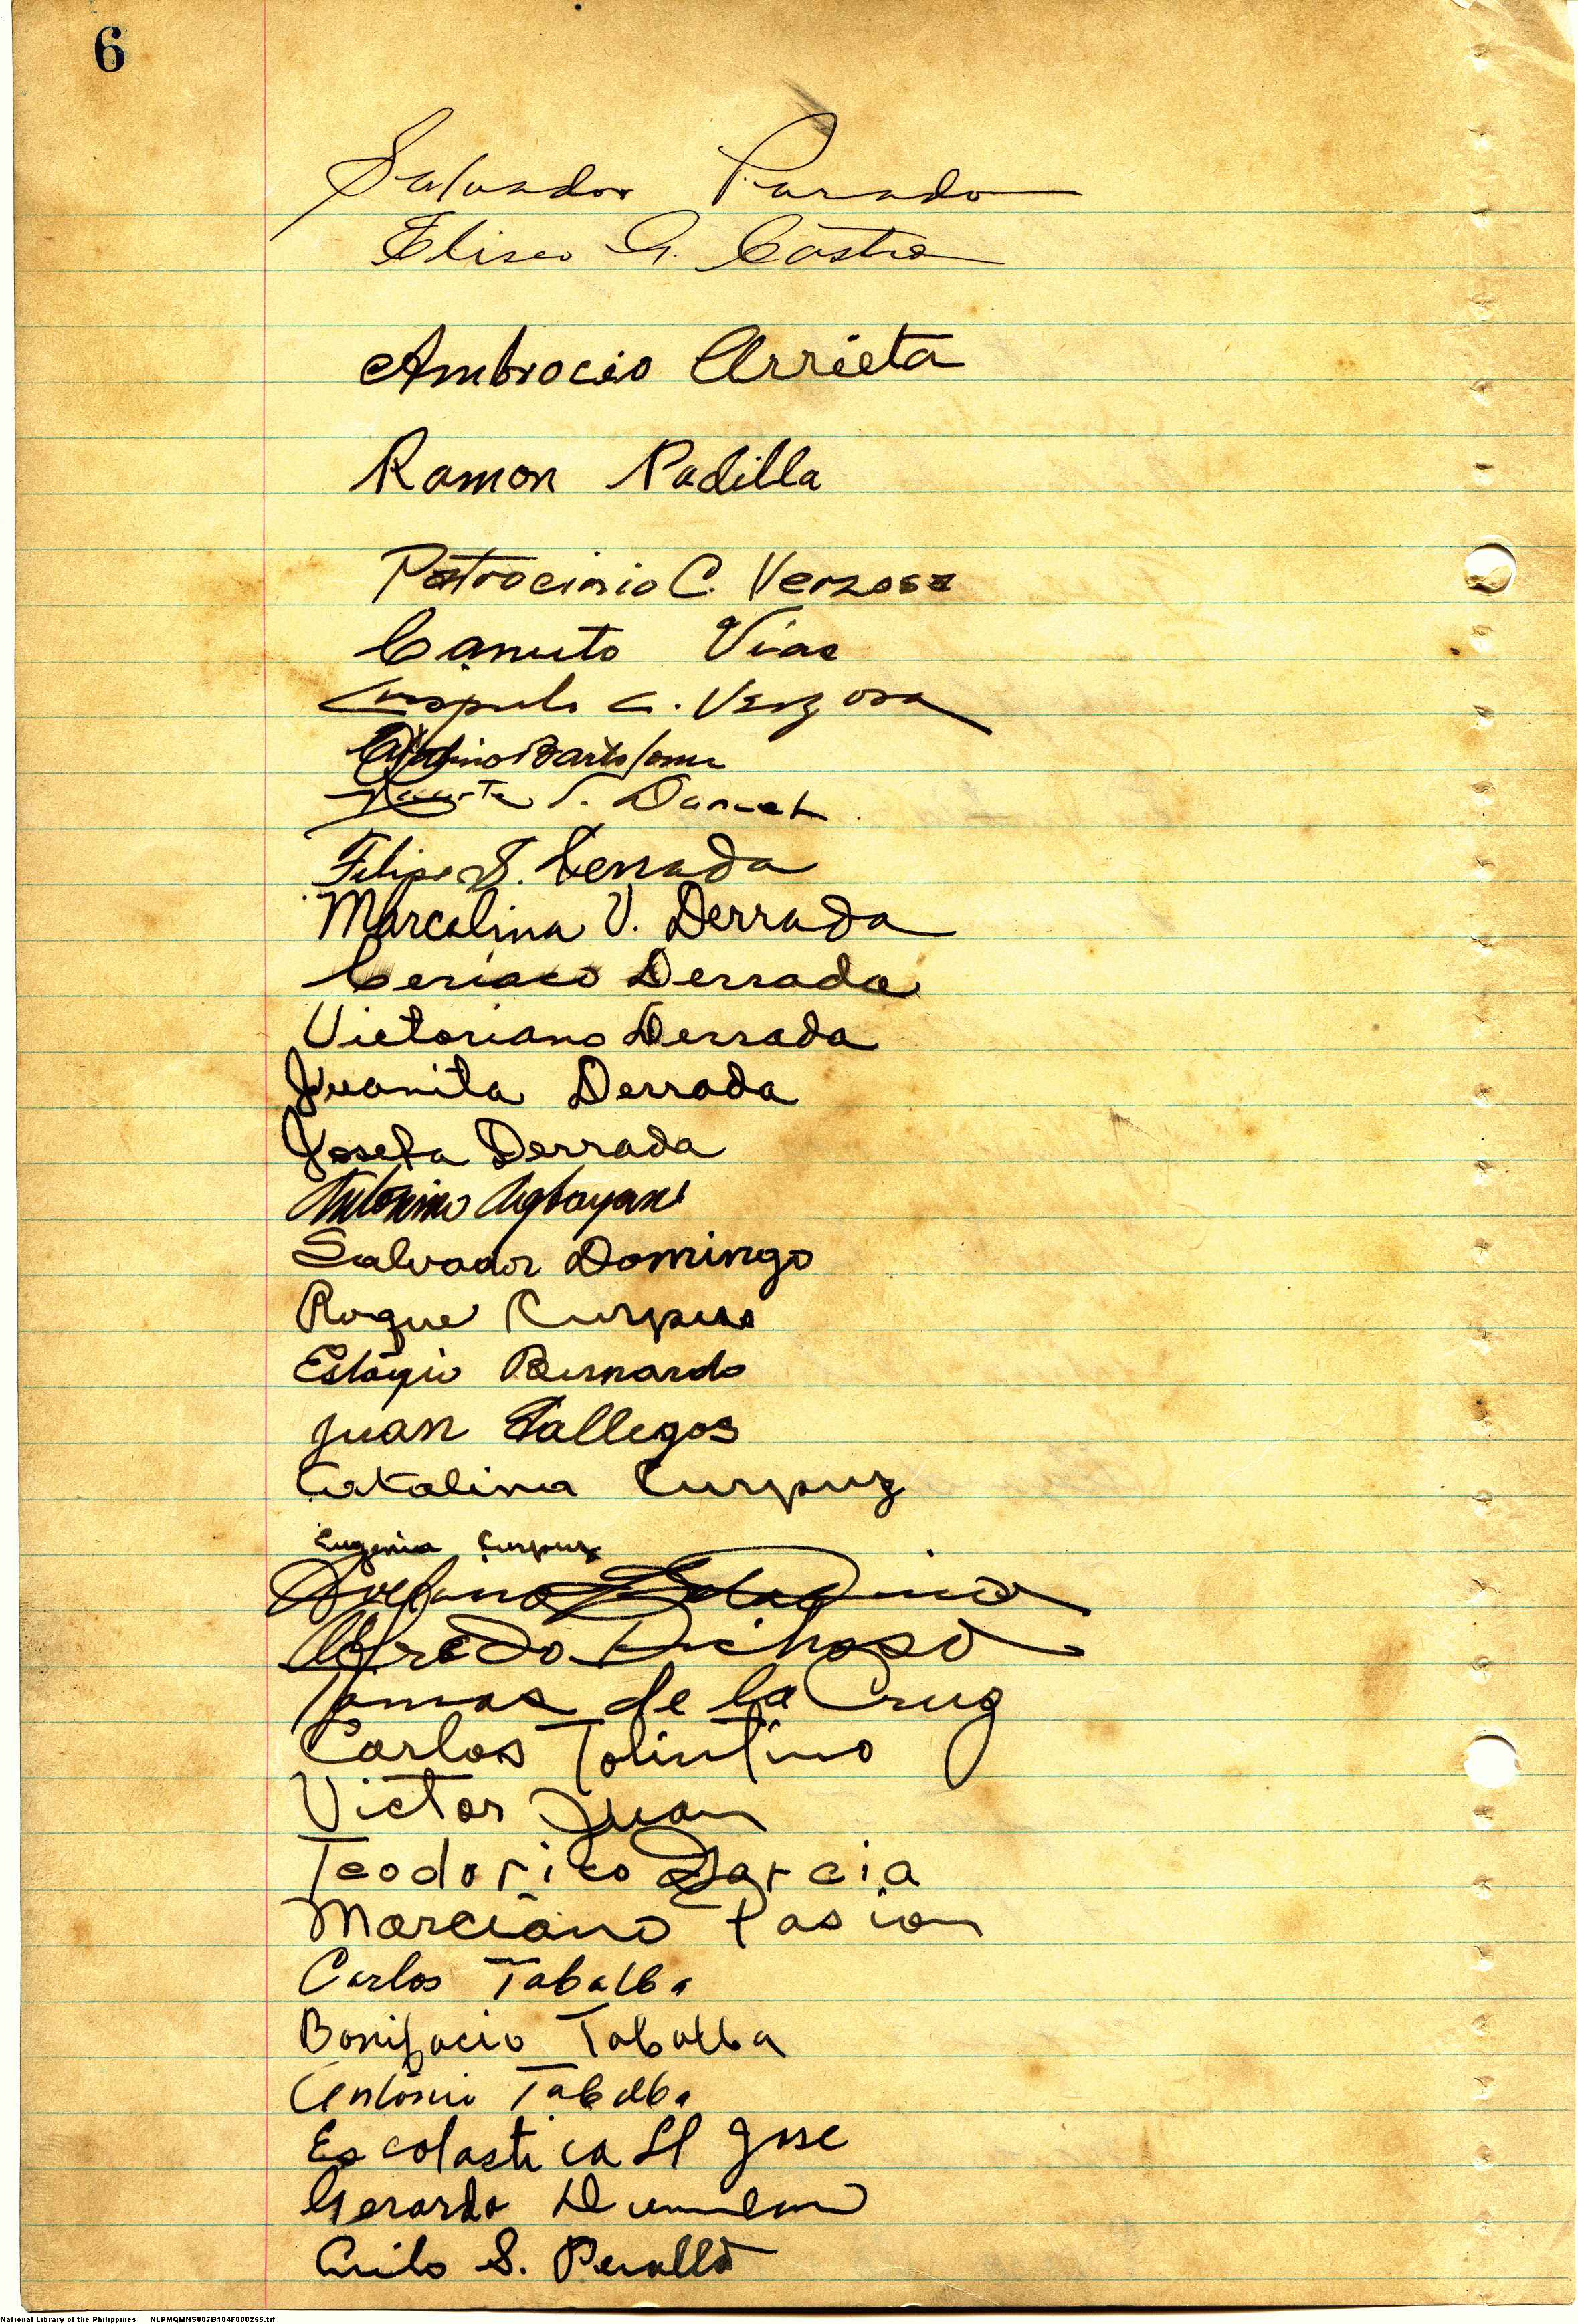 6
Salvador Parado
Eliseo G. Castro
Ambrocio Arrieta
Ramon Padilla
Patrocinio C. Verzosa
Canuto Vias
C. Verzosa
Bartolome
Felipe Derrada
Marcelina V. Derrada
Ceriaco Derrada
Victoriano Derrada
Juanita Derrada
Josefa Derrada
Antonino Agbayani
Salvador Domingo
Roque Curpus
Bernardo
Juan Gallegos
Catalina Curpuz
Eugenia Curpuz
Alfredo Dichoso
Tomas de la Cruz
Carlos Tolintino
Victor Juan
Teodorico Garcia
Marciano Pasion
Carlos Tabalba
Bonifacio Tabalba
Antonio Tabalba
Escolastica Jose
Gerardo
S. Peralta
National Library of the Philippines NLPMQMNS007B104F000255.tif